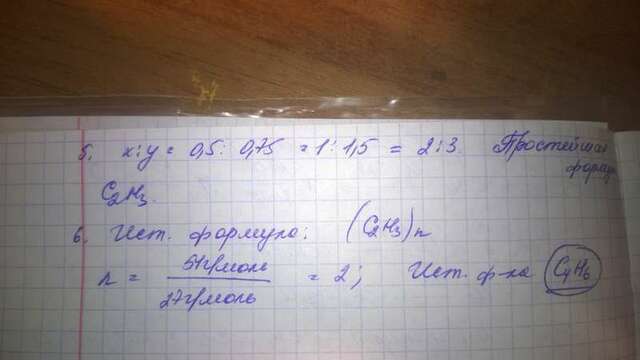 5. x:y = 0,5 : 0,75 = 1 : 1,5 = 2:3 Простейшая
формула
C₂H₃.
6. Ист. формула: (C₂H₃)n
n = 54г/моль / 27г/моль = 2; Ист. ф-ла C₄H₆